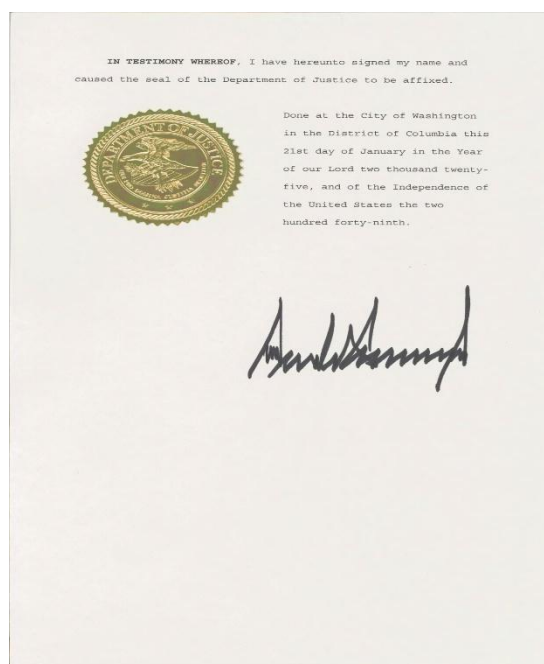 IN TESTIMONY WHEREOF, I have hereunto signed my name and
caused the seal of the Department of Justice to be affixed.
DEPARTMENT OF JUSTICE
QUI PRO DOMINA JUSTITIA SEQUITUR
Done at the City of Washington
in the District of Columbia this
21st day of January in the Year
of our Lord two thousand twenty-
five, and of the Independence of
the United States the two
hundred forty-ninth.